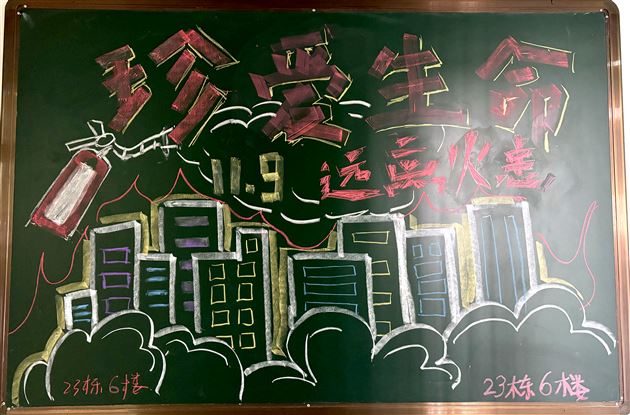 珍爱生命
11.9 远离火患
23栋6楼 23栋6楼